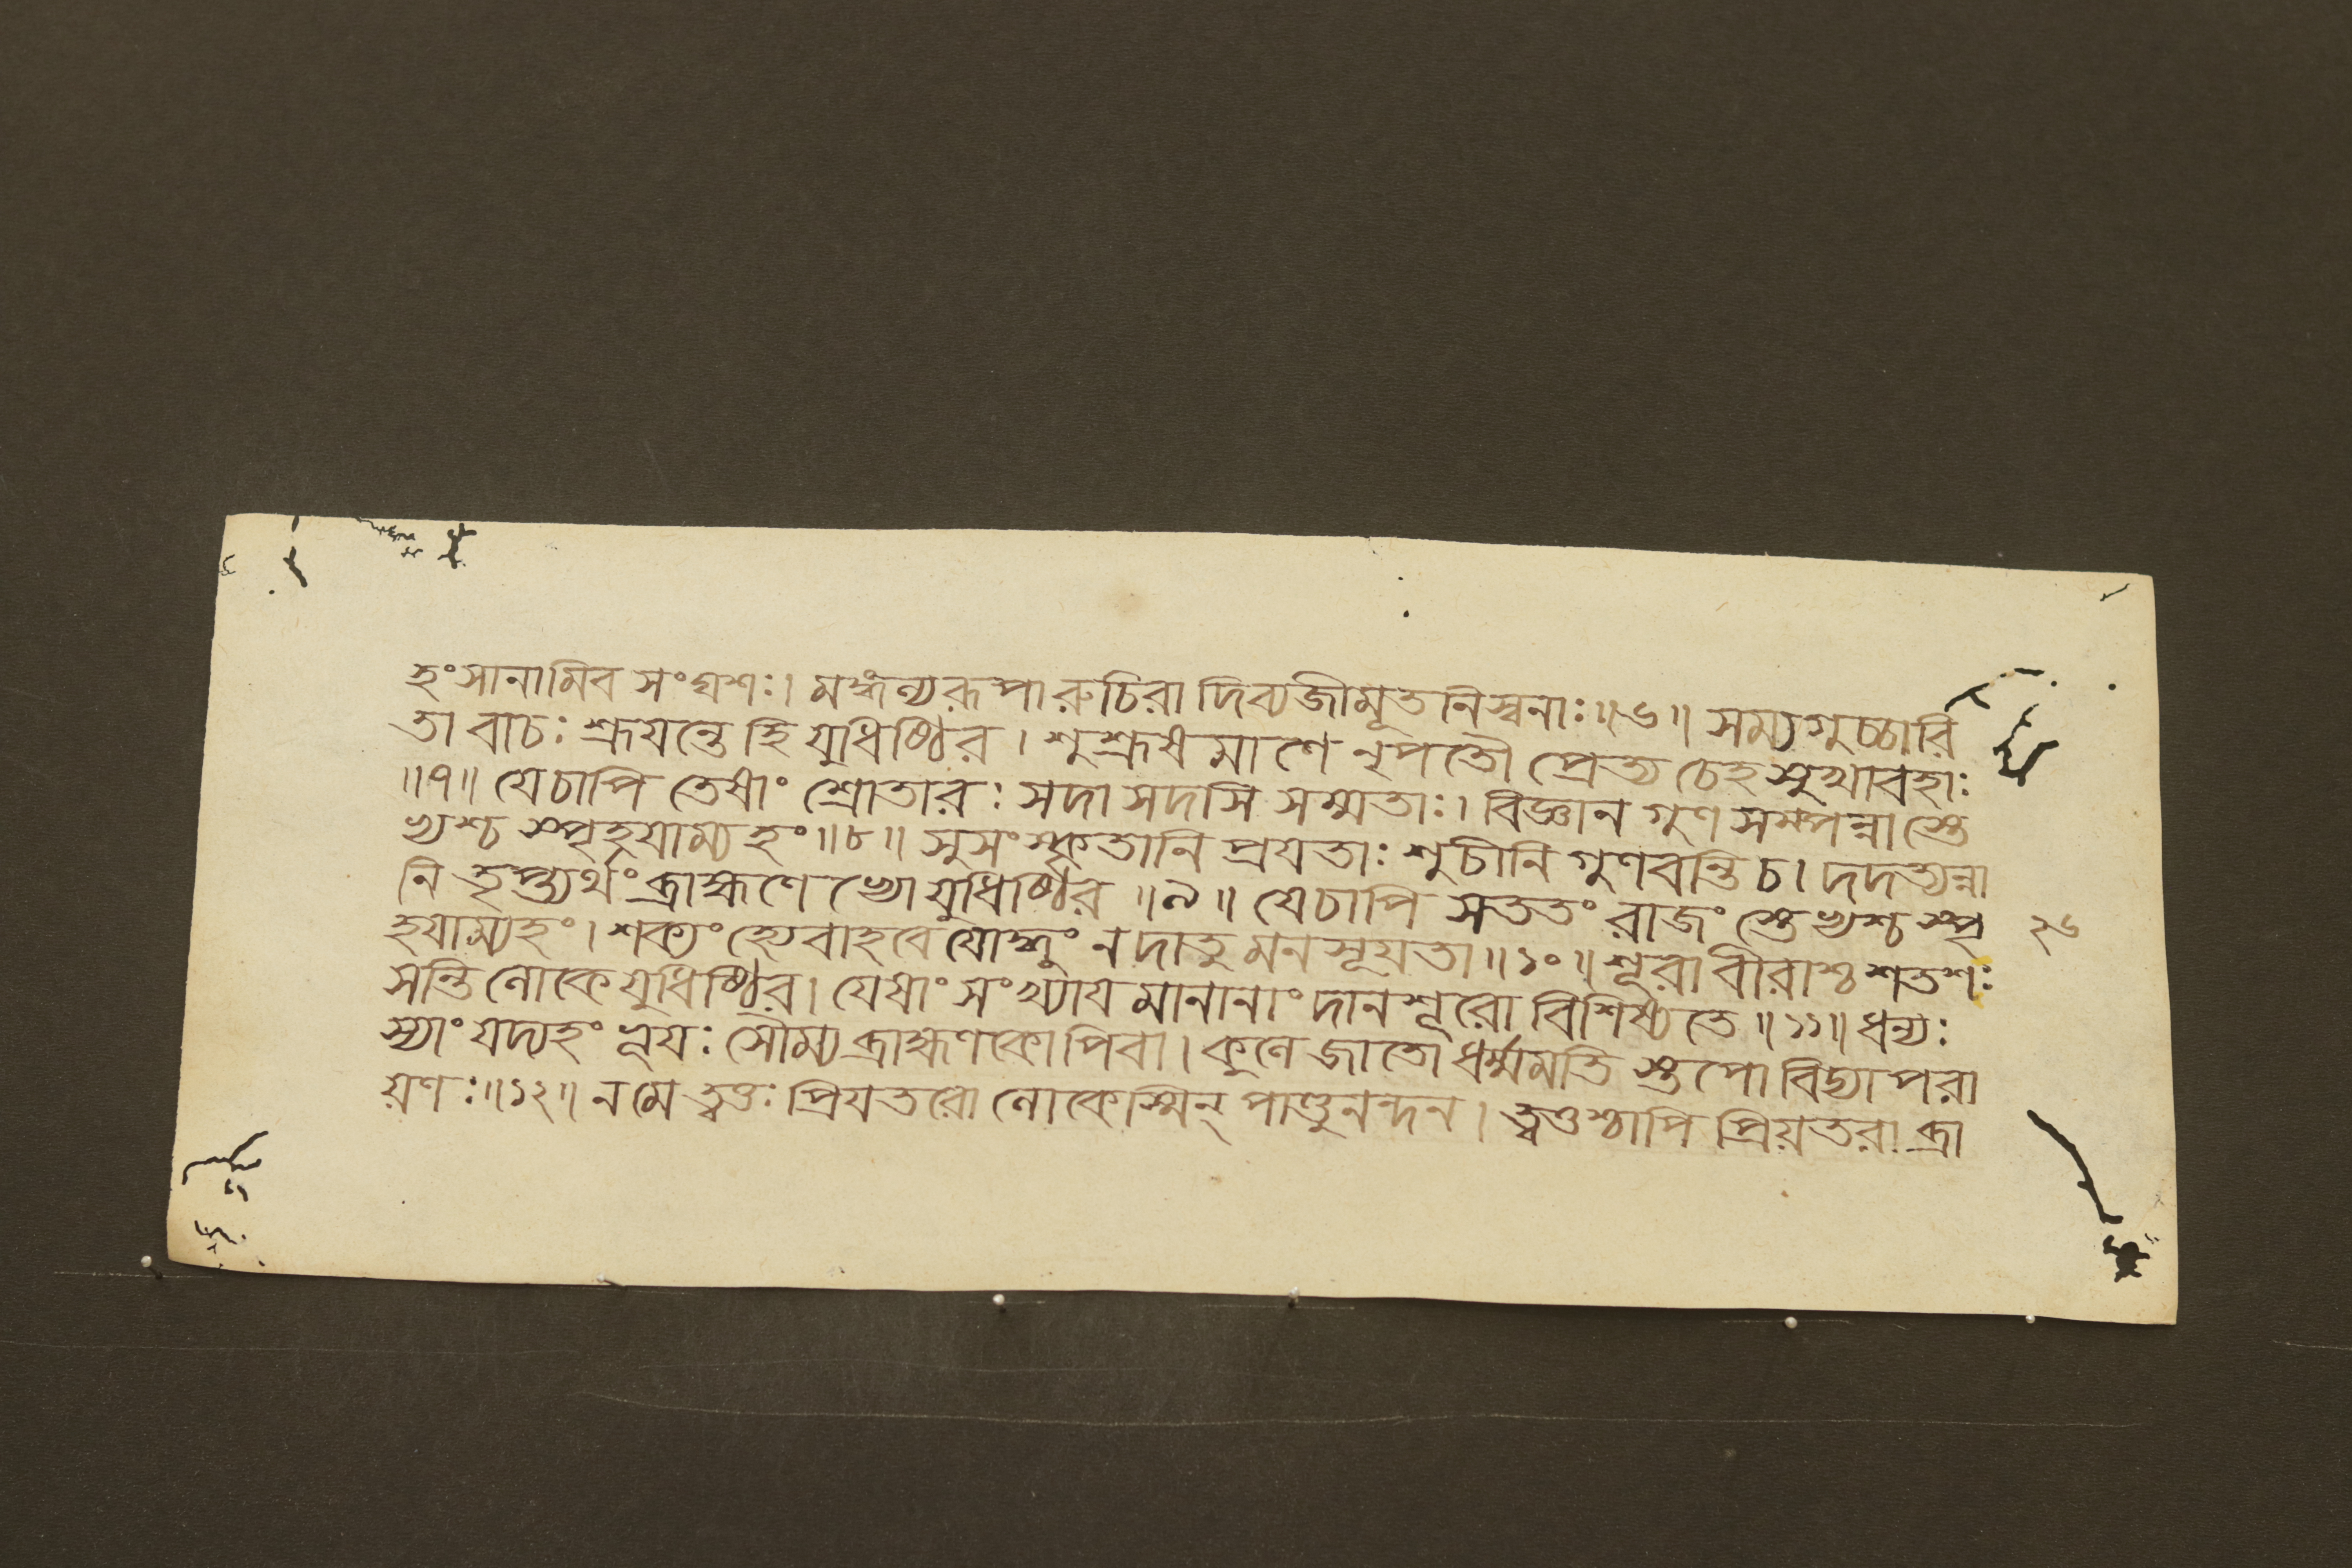 হংসানামিব সংঘশঃ। মঙ্গল্যরূপারুচিরা দিব্যজীমূতনিস্বনাঃ॥৬॥ সম্যগুচ্চারি
তা বাচঃ শ্রূযন্তে হি যুধিষ্ঠির। শুশ্রূষমাণে নৃপতৌ প্রেত্য চেহ সুখাবহাঃ
॥৭॥ যেচাপি তেষাং শ্রোতারঃ সদা সদসি সম্মতাঃ। বিজ্ঞানগুণসম্পন্নাস্তে
ভ্যশ্চ স্পৃহযাম্যহং॥৮॥ সুসংস্কৃতানি প্রযতাঃ শুচীনি গুণবন্তি চ। দদত্যন্না
নি তৃপ্ত্যর্থং ব্রাহ্মণেভ্যো যুধিষ্ঠির॥৯॥ যেচাপি সততং রাজংস্তেভ্যশ্চ স্পৃ
হযাম্যহং। শক্যং হ্যেবাহবে যোদ্ধুং ন দাতুমনসূযতা॥১০॥ শূরা বীরাশ্চ শতশঃ
সন্তি লোকে যুধিষ্ঠির। যেষাং সংখ্যাযমানানাং দানশূরো বিশিষ্যতে॥১১॥ ধন্যঃ
স্যাং যদ্যহং ভূযঃ সৌম্য ব্রাহ্মণকোপিবা। কুলে জাতো ধর্ম্মমতিস্তপোবিদ্যাপরা
য়ণঃ॥১২॥ নমে ত্বত্তঃ প্রিযতরো লোকেস্মিন্ পাণ্ডুনন্দন। ত্বত্তশ্চাপি প্রিয়তরা ব্রা
২৬